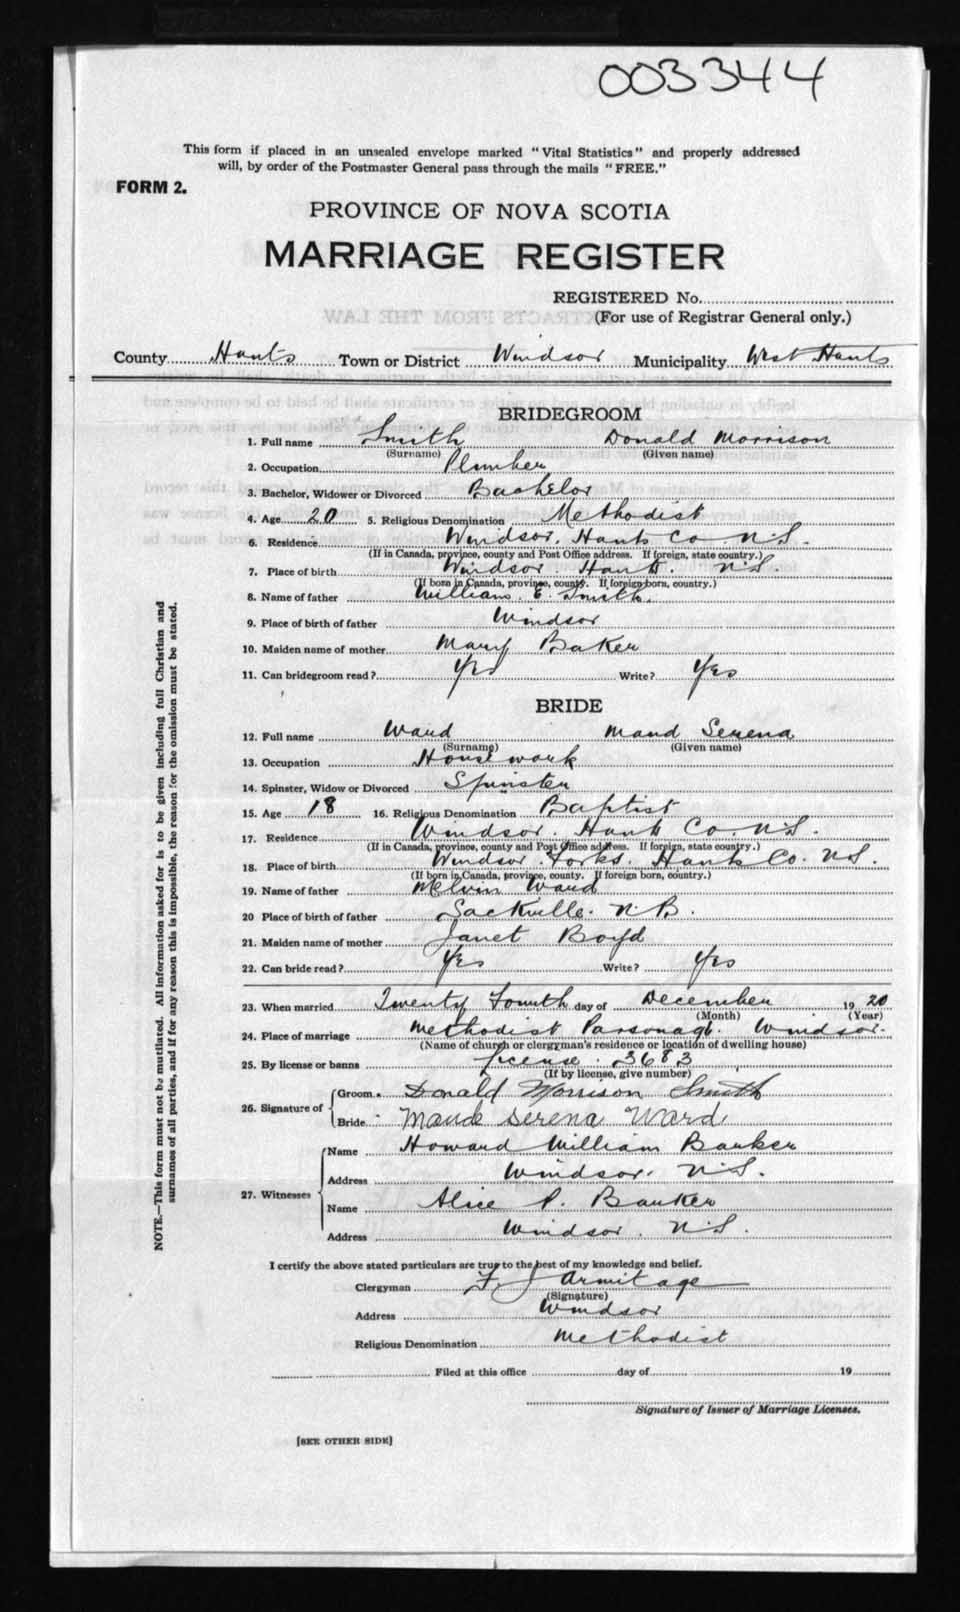 003344
This form if placed in an unsealed envelope marked "Vital Statistics" and properly addressed
will, by order of the Postmaster General pass through the mails "FREE."
FORM 2.
PROVINCE OF NOVA SCOTIA
MARRIAGE REGISTER
REGISTERED No.
(For use of Registrar General only.)
EXTRACTS FROM THE LAW
County Hants Town or District Windsor Municipality West Hants
BRIDEGROOM
1. Full name Smith Donald Morrison
(Surname) (Given name)
2. Occupation Plumber
3. Bachelor, Widower or Divorced Bachelor
4. Age 20 5. Religious Denomination Methodist
6. Residence Windsor, Hants Co. N.S.
(If in Canada, province, county and Post Office address. If foreign, state country.)
7. Place of birth Windsor Hants. N.S.
(If born in Canada, province, county. If foreign born, country.)
8. Name of father William. E. Smith.
9. Place of birth of father Windsor
10. Maiden name of mother Mary Baker
11. Can bridegroom read? Yes Write? Yes
BRIDE
12. Full name Ward Maud Serena
(Surname) (Given name)
13. Occupation House work
14. Spinster, Widow or Divorced Spinster
15. Age 18 16. Religious Denomination Baptist
17. Residence Windsor. Hants Co. N.S.
(If in Canada, province, county and Post Office address. If foreign, state country.)
18. Place of birth Windsor Forks. Hants Co. N.S.
(If born in Canada, province, county. If foreign born, country.)
19. Name of father Melvin Ward
20 Place of birth of father Sackville. N.B.
21. Maiden name of mother Janet Boyd
22. Can bride read? Yes Write? Yes
23. When married Twenty Fourth day of December 1920
(Month) (Year)
24. Place of marriage Methodist Parsonage. Windsor.
(Name of church or clergyman's residence or location of dwelling house)
25. By license or banns License. 3683
(If by license, give number)
26. Signature of Groom Donald Morrison Smith
Bride Maude Serena Ward
27. Witnesses Name Howard William Barker
Address Windsor, N.S.
Name Alice P. Barker
Address Windsor. N.S.
I certify the above stated particulars are true to the best of my knowledge and belief.
Clergyman F. J Armitage
(Signature)
Address Windsor
Religious Denomination Methodist
Filed at this office day of 19
Signature of Issuer of Marriage Licenses.
[SEE OTHER SIDE]
NOTE.—This form must not be mutilated. All information asked for is to be given including full Christian and
surnames of all parties, and if for any reason this is impossible, the reason for the omission must be stated.